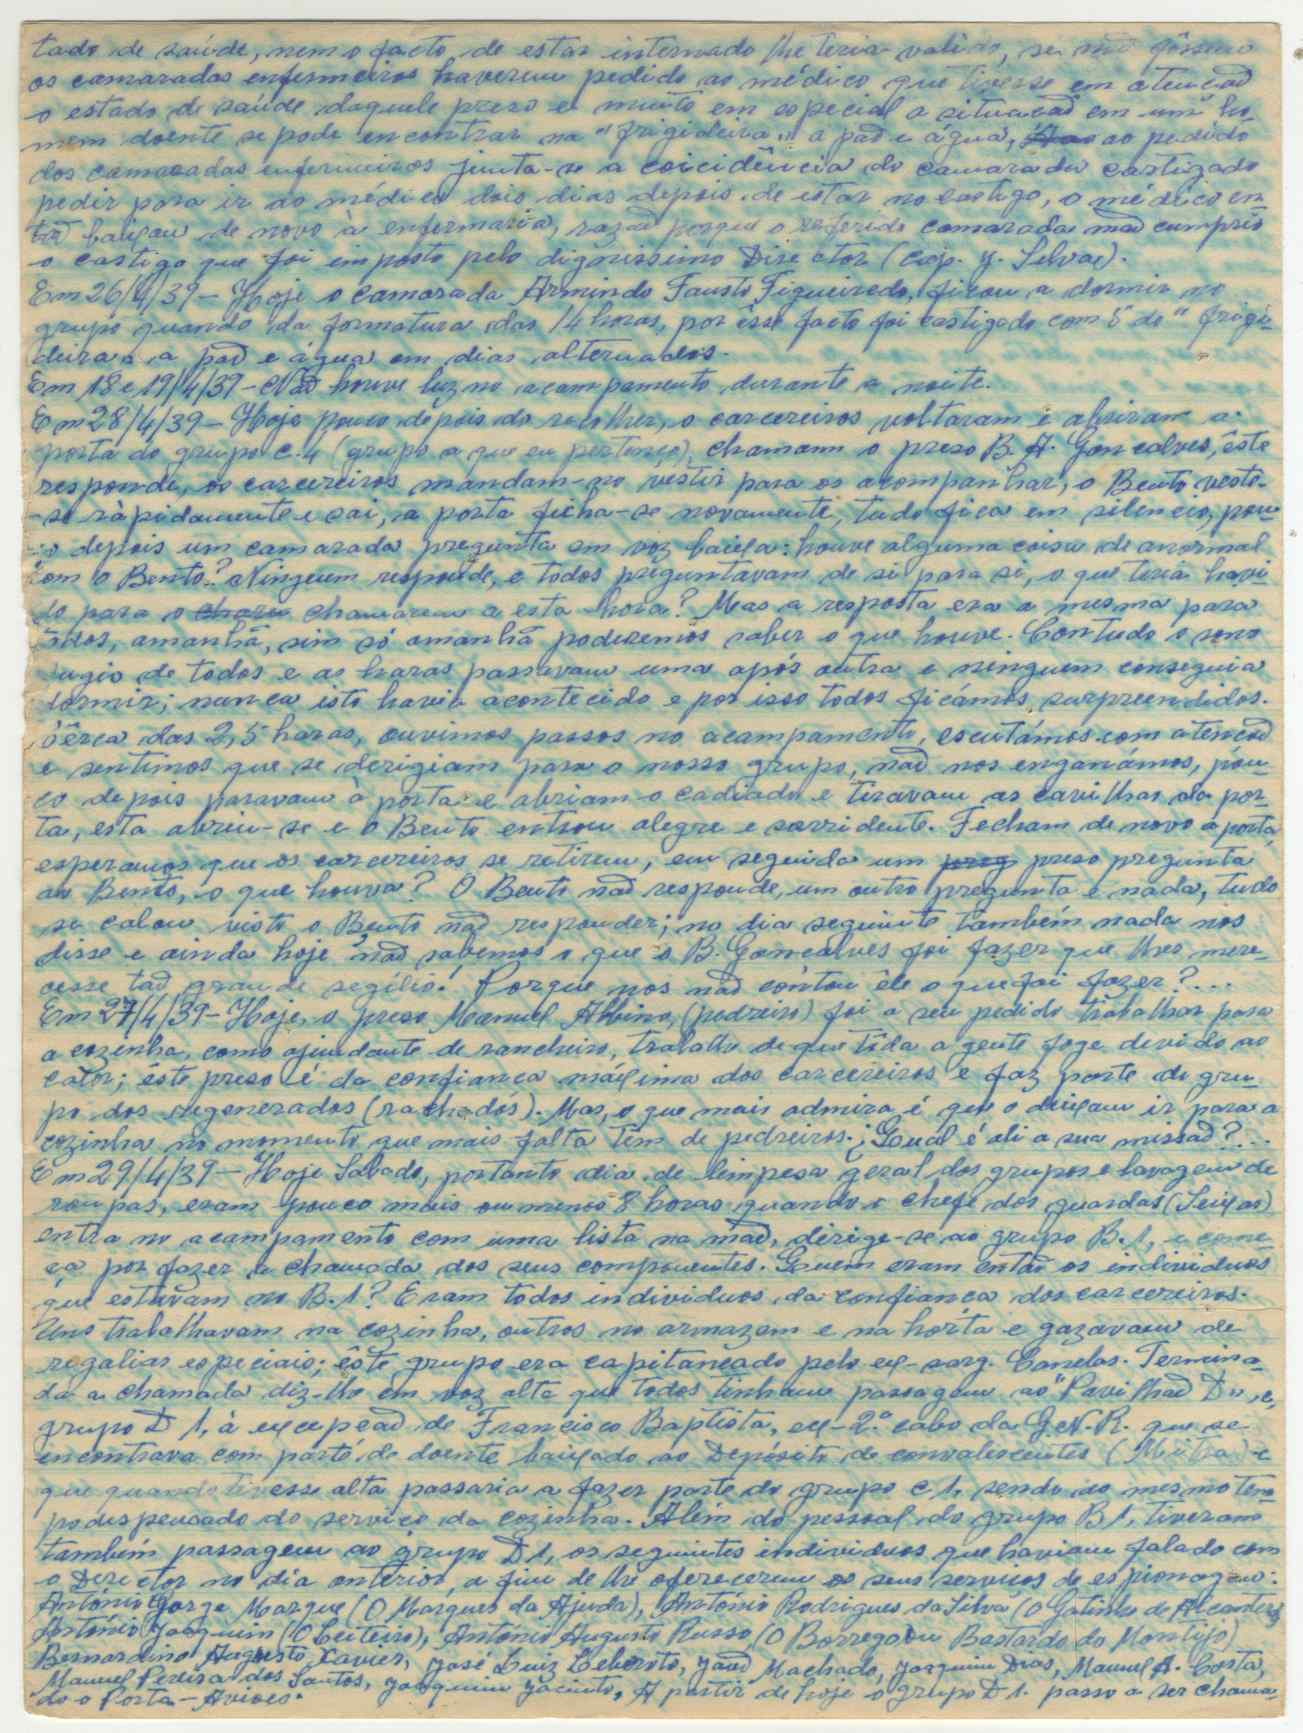 tado de saúde, nem o facto de estar internado lhe teria valido, se não fôssem
os camaradas enfermeiros haverem pedido ao médico que tivesse em atenção
o estado de saúde daquele preso e muito em especial a situação em um ho-
mem doente se pode encontrar na "frigideira" a pão e água, ao pedido
dos camaradas enfermeiros junta-se a coicidência do camarada castigado
pedir para ir ao médico dois dias depois de estar no castigo, o médico en-
tão baixou de novo à enfermaria, razão porque o referido camarada não cumpriu
o castigo que foi imposto pelo dignissimo Director (Cap. J. Silva).
Em 26/4/39 - Hoje o camarada Armindo Fausto Figueiredo, ficou a dormir no
grupo quando da formatura das 14 horas, por êsse facto foi castigado com 5 de "frigi-
deira" a pão e água em dias alternados.
Em 18 e 19/4/39 - Não houve luz no acampamento durante a noite.
Em 28/4/39 - Hoje pouco depois do recolher, o carcereiros voltaram e abriram a
porta do grupo C.4 (grupo a que eu pertenço), chamam o preso B. A. Gonçalves, êste
responde, os carcereiros mandam-no vestir para os acompanhar, o Bento veste-
-se ràpidamente e sai, a porta ficha-se novamente, tudo fica em silencio, pou-
co depois um camarada pregunta em voz baixa: houve alguma coisa de anormal
com o Bento? Ninguem responde, e todos preguntavam de si para si, o que teria havi
do para o chamarem a esta hora? Mas a resposta era a mesma para
todos, amanhã, sim só amanhã poderemos saber o que houve. Contudo o sono
fugio de todos e as horas passavam uma após outra e ninguem conseguia
dormir; nunca isto havia acontecido e por isso todos ficámos surpreendidos.
Cêrca das 2,5 horas, ouvimos passos no acampamento, escutámos com atenção
e sentimos que se derigiam para o nosso grupo, não nos enganámos, pou-
co depois paravam à porta e abriam o cadiado e tiravam as cavilhas da por-
ta, esta abriu-se e o Bento entrou alegre e sorridente. Fecham de novo a porta,
esperamos que os carcereiros se retirem, em seguida um preso pregunta
ao Bento, o que houva? O Bento não responde, um outro pregunta e nada, tudo
se calou visto o Bento não responder; no dia seguinte também nada nos
disse e ainda hoje não sabemos o que o B. Gonçalves foi fazer que lhes mere-
cesse tão grande segílio! Porque nos não contou êle o que foi fazer?...
Em 27/4/39 - Hoje, o preso Manuel Albino, (pedreiro) foi a seu pedido trabalhar para
a cozinha, como ajudante de rancheiro, trabalho de que tôda a gente foge devido ao
calor; êste preso é da confiança máxima dos carcereiros e faz parte do gru-
po dos regenerados (rachados). Mas, o que mais admira é que o deixam ir para a
cozinha no momento que mais falta tem de pedreiros. ¿Qual é ali a sua missão?...
Em 29/4/39 - Hoje Sabado, portanto dia de limpesa geral dos grupos e lavagem de
roupas, eram pouco mais ou menos 8 horas quando o chefe dos guardas (Seixas)
entra no acampamento com uma lista na mão, dirige-se ao grupo B.1, e come-
ça por fazer a chamada dos seus componentes. Quem eram então os individuos
que estavam no B.1? Eram todos individuos da confiança dos carcereiros.
Uns trabalhavam na cozinha, outros no armazem e na horta e gazavam de
regalias especiais; êste grupo era capitaneado pelo ex-sarg. Canelas. Termina-
da a chamada diz-lhe em voz alta que todos tinham passagem ao "Pavilhão D", e,
grupo D 1, à excepção de Francisco Baptista, ex-2º cabo da G.N.R. que se
encontrava com parte de doente baixado ao Depósito de convalescentes (Mitra) e
que quando tivesse alta passaria a fazer parte do grupo C 1, sendo ao mesmo tem-
po dispensado do serviço da cozinha. Além do pessoal do grupo B1, tiveram
também passagem ao grupo D1, os seguintes individuos que haviam falado com
o Director no dia anterior, a fim de lhe oferecerem os seus serviços de espionagem:
António Jorge Marque (O Marques da Ajuda), António Rodrigues da Silva (O Gatinho de Alcantera)
António Joaquim (O Leiteiro), António Augusto Russo, (O Borrego ou Bastardo do Montijo)
Bernardino Augusto Xavier, José Luiz Leberoto, João Machado, Joaquim Dias, Manuel A. Costa,
Manuel Pereira dos Santos, Joaquim Jacinto. A partir de hoje o grupo D 1. passo a ser chama-
do o Porta-Aviões.